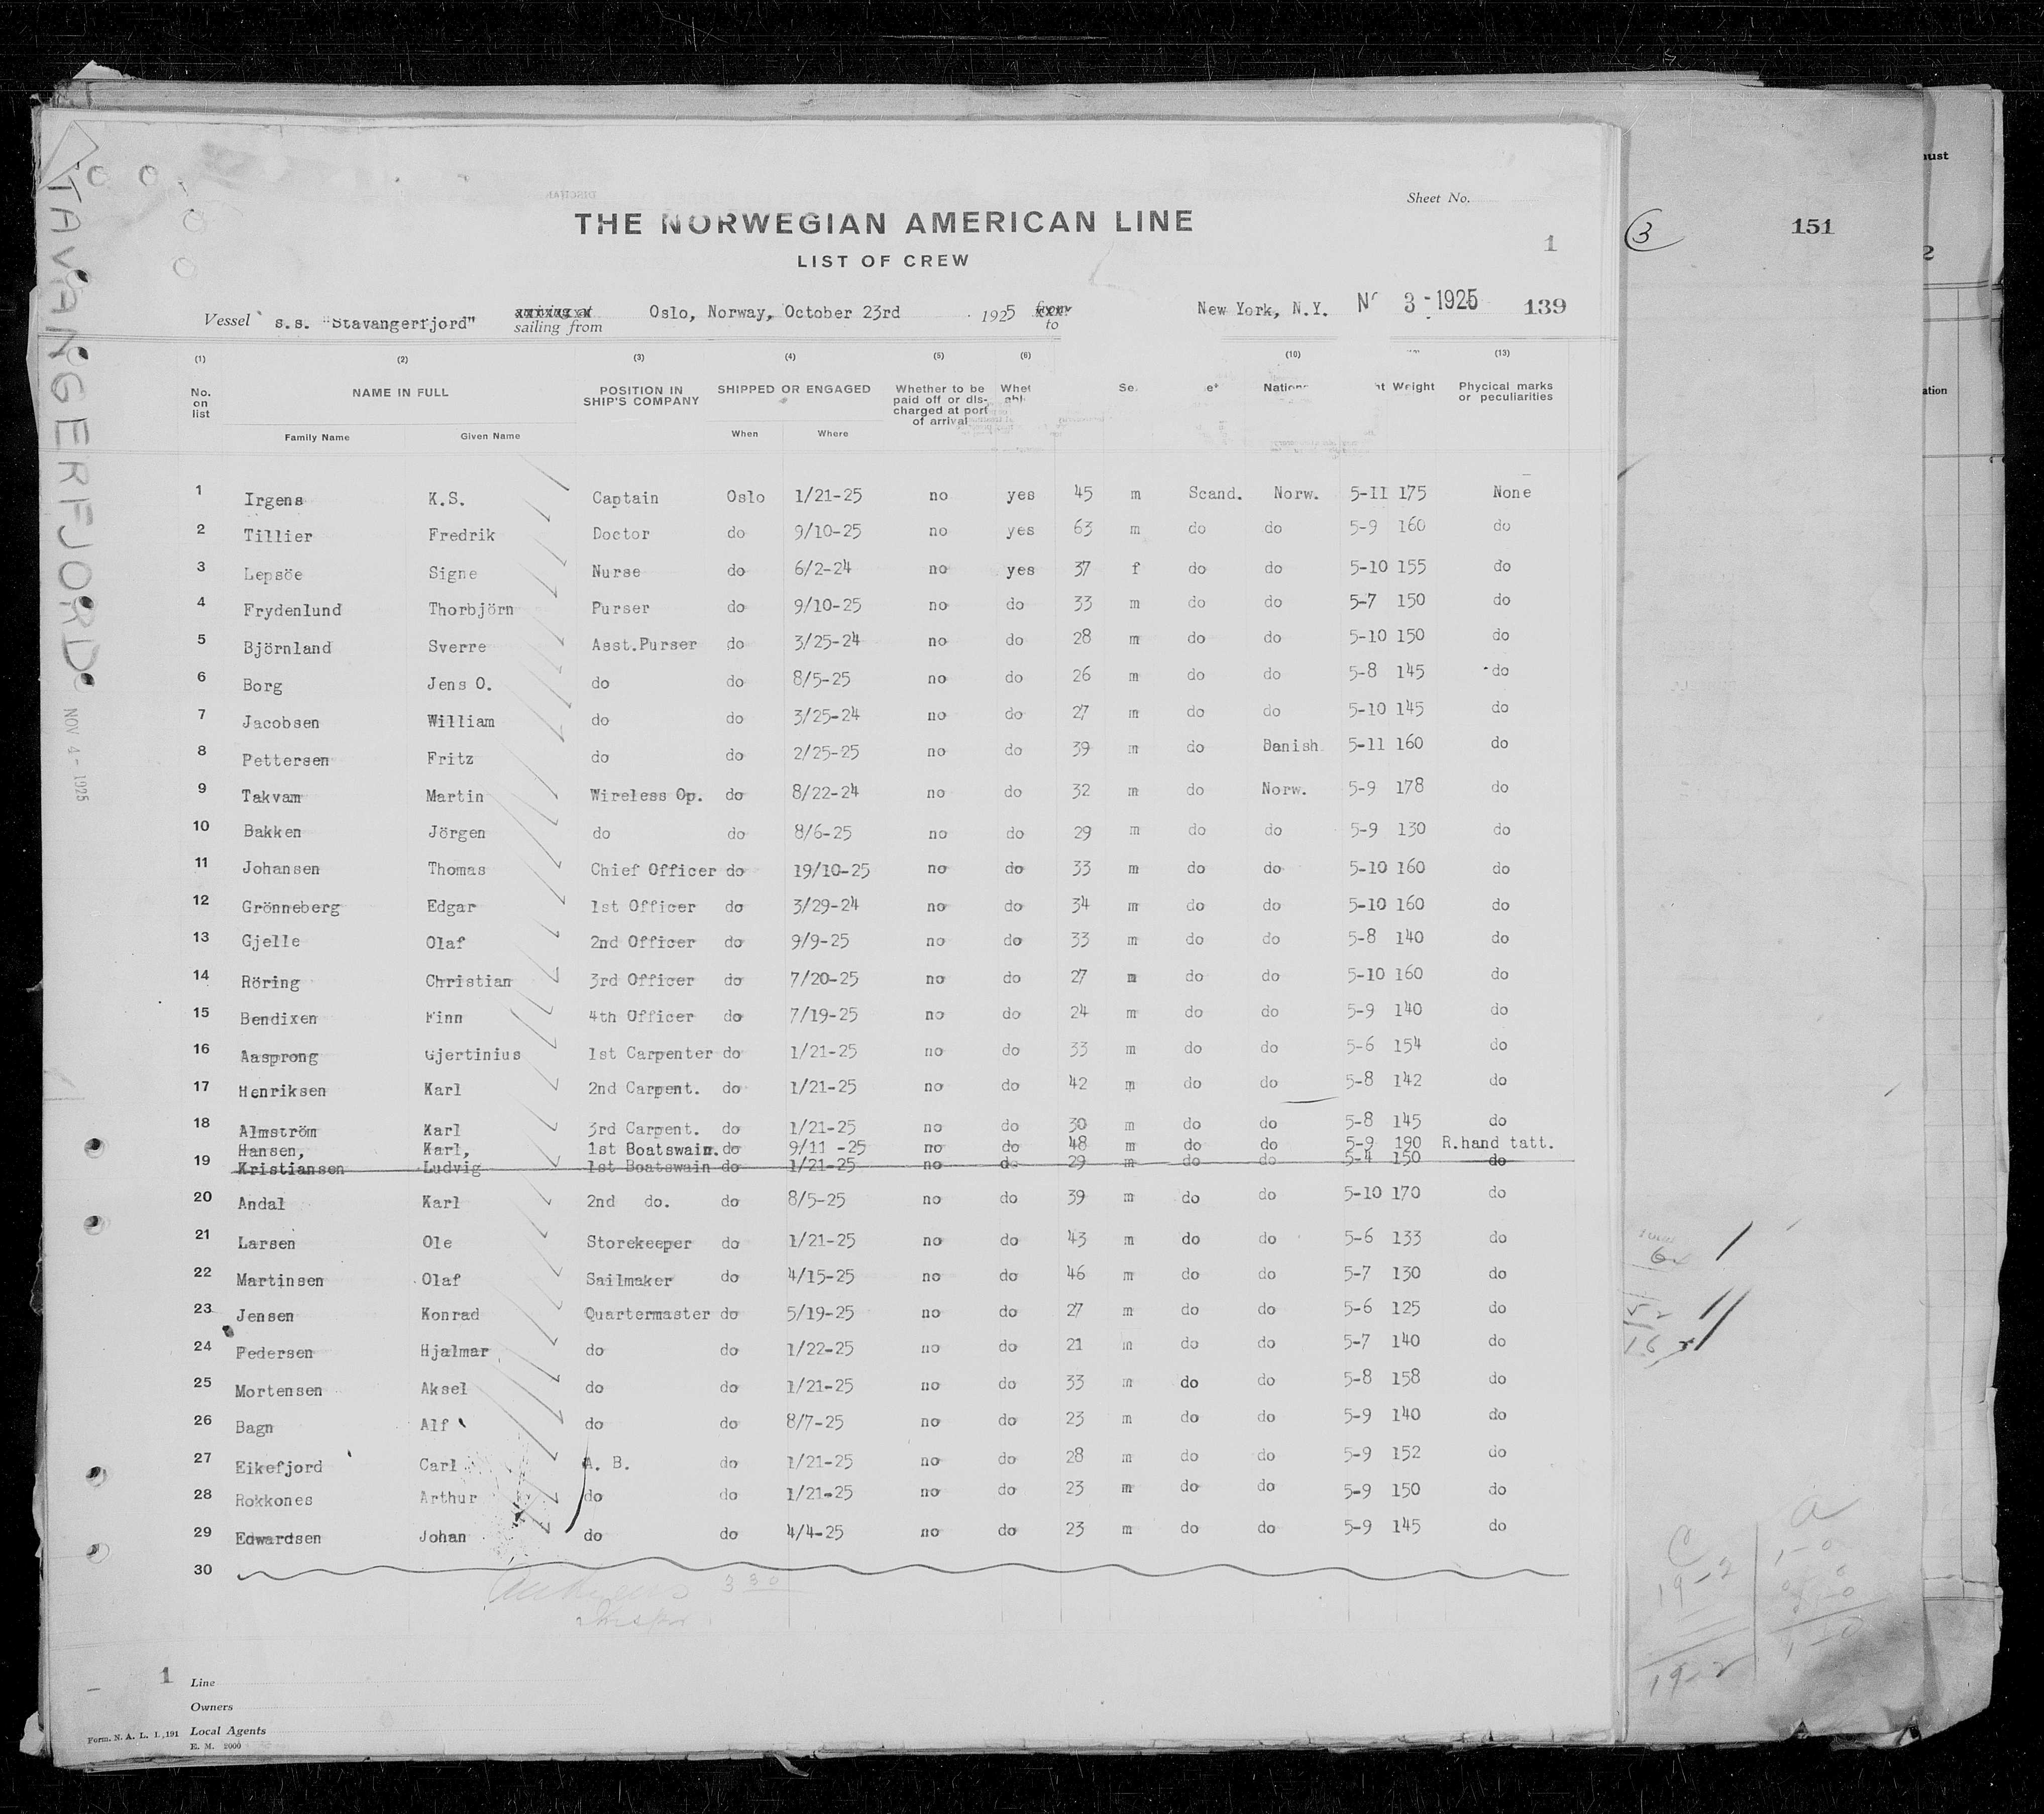 STAVANGERFJORD
NOV 4 - 1925
Sheet No.
THE NORWEGIAN AMERICAN LINE
1
LIST OF CREW
Vessel s.s. "Stavangerfjord" sailing from Oslo, Norway, October 23rd 1925 to New York, N.Y. 3 - 1925 139
(1) (2) (3) (4) (5) (6) (10) (13)
No. on list NAME IN FULL POSITION IN SHIP'S COMPANY SHIPPED OR ENGAGED Whether to be paid off or discharged at port of arrival Weight Phycical marks or peculiarities
Family Name Given Name When Where
1 Irgens K.S. Captain Oslo 1/21-25 no yes 45 m Scand. Norw. 5-11 175 None
2 Tillier Fredrik Doctor do 9/10-25 no yes 63 m do do 5-9 160 do
3 Lepsöe Signe Nurse do 6/2-24 no yes 37 f do do 5-10 155 do
4 Frydenlund Thorbjörn Purser do 9/10-25 no do 33 m do do 5-7 150 do
5 Björnland Sverre Asst.Purser do 3/25-24 no do 28 m do do 5-10 150 do
6 Borg Jens O. do do 8/5-25 no do 26 m do do 5-8 145 do
7 Jacobsen William do do 3/25-24 no do 27 m do do 5-10 145 do
8 Pettersen Fritz do do 2/25-25 no do 39 m do Danish 5-11 160 do
9 Takvam Martin Wireless Op. do 8/22-24 no do 32 m do Norw. 5-9 178 do
10 Bakken Jörgen do do 8/6-25 no do 29 m do do 5-9 130 do
11 Johansen Thomas Chief Officer do 19/10-25 no do 33 m do do 5-10 160 do
12 Grönneberg Edgar 1st Officer do 3/29-24 no do 34 m do do 5-10 160 do
13 Gjelle Olaf 2nd Officer do 9/9-25 no do 33 m do do 5-8 140 do
14 Röring Christian 3rd Officer do 7/20-25 no do 27 m do do 5-10 160 do
15 Bendixen Finn 4th Officer do 7/19-25 no do 24 m do do 5-9 140 do
16 Aasprong Gjertinius 1st Carpenter do 1/21-25 no do 33 m do do 5-6 154 do
17 Henriksen Karl 2nd Carpent. do 1/21-25 no do 42 m do do 5-8 142 do
18 Almström Karl 3rd Carpent. do 1/21-25 no do 30 m do do 5-8 145 do
Hansen, Karl, 1st Boatswain. do 9/11 -25 no do 48 m do do 5-9 190 R.hand tatt.
19 Kristiansen Ludvig 1st Boatswain do 1/21-25 no do 29 m do do 5-4 150 do
20 Andal Karl 2nd do. do 8/5-25 no do 39 m do do 5-10 170 do
21 Larsen Ole Storekeeper do 1/21-25 no do 43 m do do 5-6 133 do
22 Martinsen Olaf Sailmaker do 4/15-25 no do 46 m do do 5-7 130 do
23 Jensen Konrad Quartermaster do 5/19-25 no do 27 m do do 5-6 125 do
24 Pedersen Hjalmar do do 1/22-25 no do 21 m do do 5-7 140 do
25 Mortensen Aksel do do 1/21-25 no do 33 m do do 5-8 158 do
26 Bagn Alf do do 8/7-25 no do 23 m do do 5-9 140 do
27 Eikefjord Carl A. B. do 1/21-25 no do 28 m do do 5-9 152 do
28 Rokkones Arthur do do 1/21-25 no do 23 m do do 5-9 150 do
29 Edwardsen Johan do do 4/4-25 no do 23 m do do 5-9 145 do
30
1
Line
Owners
Local Agents
Form. N. A. L. 1.,191
E. M. 2000
3
151
19-2
19-2